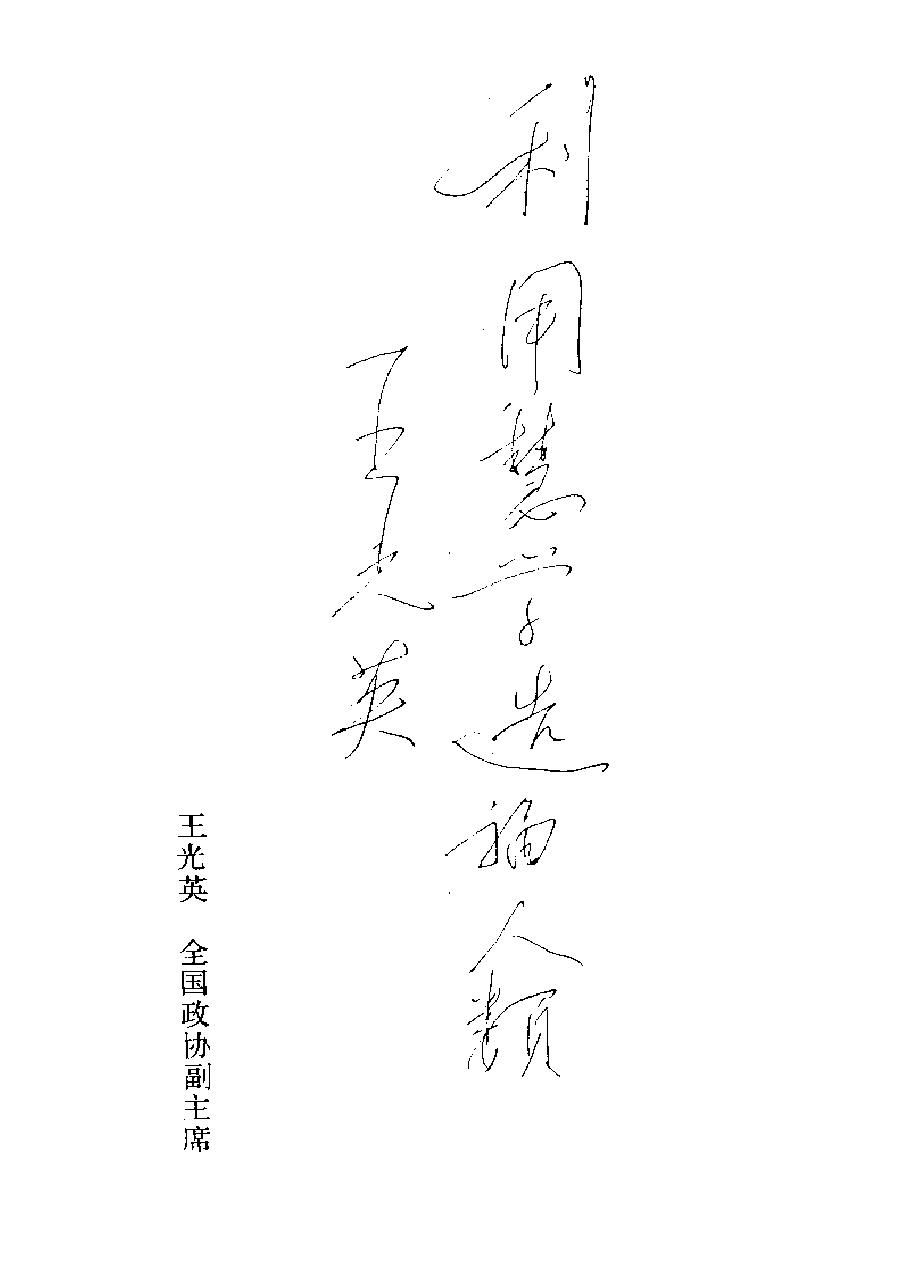 利用慧学造福人類
王光英
王光英 全国政协副主席